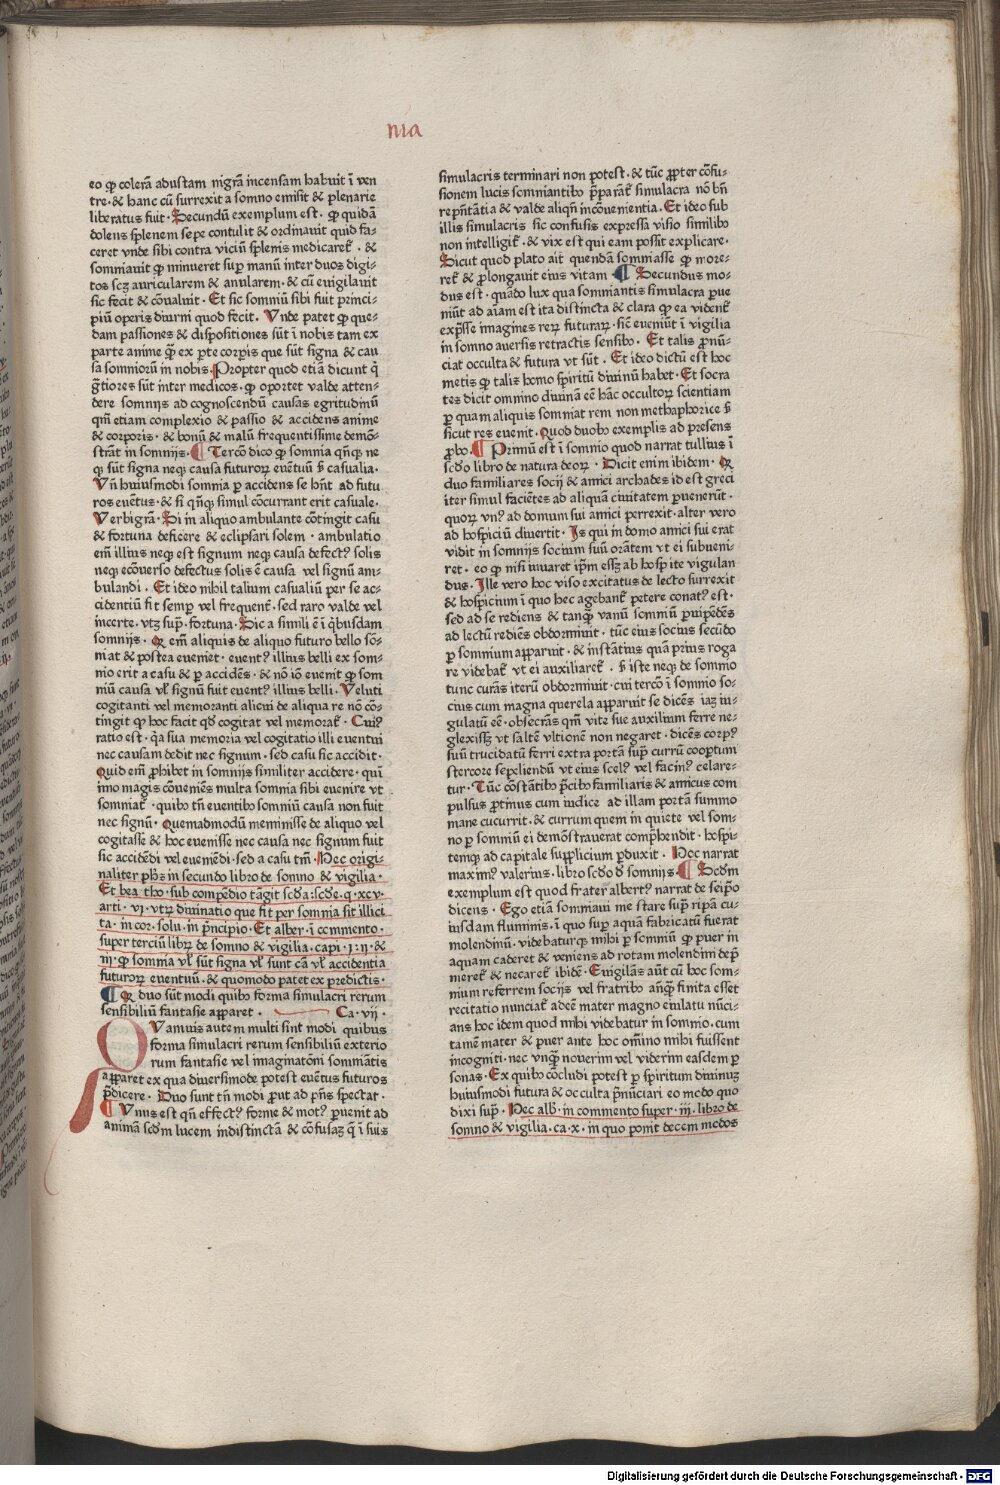 nia
eo ꝙ colerā adustam nigrā incensam habuit ī ven
tre · & hanc cū surrexit a somno emisit & plenarie
liberatus fuit · Secundū exemplum est · ꝙ quidā
dolens splenem sepe contulit & ordinauit quid fa⸗
ceret vnde sibi contra viciū splenis medicaret᷑ · &
somniauit ꝙ minueret sup̄ manū inter duos digi⸗
tos scꝫ auricularem & anularem · & cū euigilauit
sic fecit & cōualuit · Et sic somniū sibi fuit princi⸗
piū operis diurni quod fecit · Vnde patet ꝙ que⸗
dam passiones & dispositiones sūt ī nobis tam ex
parte anime ꝙ̄ ex ꝑte corꝑis que sūt signa & cau
sa somniorū in nobis · Propter quod etiā dicunt q̄
g̃tiores sūt inter medicos · ꝙ oportet valde atten⸗
dere somnijs ad cognoscendū causas egritudinū
qm̄ etiam complexio & passio & accidens anime
& corporis · & bonū & malū frequentissime demō⸗
strāt in somnijs · ¶ Tercō dico ꝙ somnia qn̄qꝫ ne
qꝫ sūt signa neqꝫ causa futuroꝝ euētuū s̄ casualia ·
Vn̄ huiusmodi somnia ꝑ accidens se hn̄t ad futu
ros euētus · & si qn̄qꝫ simul cōcurrant erit casuale ·
Verbigr̄a · Si in aliquo ambulante cōtingit casu
& fortuna deficere & eclipsari solem · ambulatio
em̄ illius neqꝫ est signum neqꝫ causa defectꝰ solis
neqꝫ ecōuerso defectus solis ē causa vel signū am⸗
bulandi · Et ideo nihil talium casualiū per se ac⸗
cidentiū fit semꝑ vel frequent᷑ · sed raro valde vel
incerte · vtꝫ sup̄ · fortuna · Sic a simili ē ī q̇busdam
somnijs · Q em̄ aliquis de aliquo futuro bello sō⸗
niat & postea eueniet · euentꝰ illius belli ex som⸗
nio erit a casu & ꝑ accidēs · & nō iō euenit ꝙ som
niū causa vl̄ signū fuit euentꝰ illius belli · Veluti
cogitanti vel memoranti alicui de aliqua re nō cō⸗
tingit ꝙ hoc facit qd̄ cogitat vel memorat᷑ · Cuiꝰ
ratio est · q̇a sua memoria vel cogitatio illi euentui
nec causam dedit nec signum · sed casu sic accidit ·
Quid em̄ ꝓhibet in somnijs similiter accidere · qui
īmo magis cōueniēs multa somnia sibi euenire vt
somniat᷑ · quibꝰ tn̄ euentibꝰ somniū causa non fuit
nec signū · Quemadmodū meminisse de aliquo vel
cogitasse & hoc euenisse nec causa nec signum fuit
sic accidēdi vel eueniēdi · sed a casu tm̄ · Hec origi⸗
naliter ph̄s in secundo libro de somno & vigilia ·
Et bea tho · sub compēdio tāgit scd̄a : scd̄e · q · xcv ·
arti · vi · vtrū diuinatio que fit per somnia sit illici
ta · in cor · solu · in p̄ncipio · Et alber · ī commento ·
super terciū libꝝ de somno & vigilia · capi · i · ii · &
iii · ꝙ somnia vl̄ sūt signa vl̄ sunt cā vl̄ accidentia
futuroꝝ euentuū · & quomodo patet ex predictis ·
¶ Q duo sūt modi quibꝰ forma simulacri rerum
sensibiliū fantasie apparet · Ca · vij ·
QVamuis autem multi sint modi quibus
forma simulacri rerum sensibiliū exterio
rum fantasie vel imaginatōni somniātis
apparet ex qua diuersimode potest euētus futuros
p̄dicere · Duo sunt tn̄ modi ꝓut ad p̄ns spectat ·
¶ Vnus est qn̄ effectꝰ forme & motꝰ ꝑuenit ad
animā scd̄m lucem indistinctā & cōfusaꝫ q̄ ī suis
simulacris terminari non potest · & tūc ꝓpter cōfu⸗
sionem lucis somniantibꝰ p̄parāt᷑ simulacra nō bn̄
rep̄ntātia & valde aliqn̄ incōuenientia · Et ideo sub
illis simulacris sic confusis expressa visio similibꝰ
non intelligit᷑ · & vix est qui eam possit explicare ·
Sicut quod plato ait quendā somniasse ꝙ more⸗
ret᷑ & ꝓlongauit eius vitam · ¶ Secundus mo⸗
dus est · quādo lux qua somniantis simulacra ꝑue
niūt ad aīam est ita distincta & clara ꝙ ea vident᷑
exp̄sse imagines reꝝ futuraꝝ · sic̄ eueniūt ī vigilia
in somno auersis retractis sensibꝰ · Et talis ꝓnū⸗
ciat occulta & futura vt sūt · Et ideo dictū est hoc
metis ꝙ talis homo spiritū diuinū habet · Et socra
tes dicit omnino diuinā eē hāc occultoꝝ scientiam
ꝑ quam aliquis somniat rem non methaphorice s̄
sicut res euenit · Quod duobꝰ exemplis ad presens
ꝓbo · ¶ Primū est ī somnio quod narrat tullius ī
scd̄o libro de natura deoꝝ · Dicit enim ibidem · Q
duo familiares socij & amici archades id est greci
iter simul faciētes ad aliquā ciuitatem ꝑuenerūt ·
quoꝝ vnꝰ ad domum sui amici perrexit · alter vero
ad hospiciū diuertit · Is qui in domo amici sui erat
vidit in somnijs socium suū orātem vt ei subueni⸗
ret · eo ꝙ nisi iuuaret ip̄m esꝫ ab hospite vigulan
dus · Ille vero hoc viso excitatus de lecto surrexit
& hospicium ī quo hec agebant᷑ petere conatꝰ est ·
sed ad se rediens & tanqꝫ vanū somniū ꝑuipēdēs
ad lectū rediēs obdormiuit · tūc eius socius secūdo
ꝑ somnium apparuit · & instātius quā prius roga
re videbat᷑ vt ei auxiliaret᷑ · s̄ iste neqꝫ de somnio
tunc curās iterū obdormiuit · cui tercō ī somnio so⸗
cius cum magna querela apparuit se dicēs iaꝫ iu⸗
gulatū eē · obsecrās qm̄ vite sue auxilium ferre ne⸗
glexisꝫ vt saltē vltionē non negaret · dicēs corpꝰ
suū trucidatū ferri extra portā sup̄ currū cooptum
stercore sepeliendū vt eius scelꝰ vel facinꝰ celare⸗
tur · Tūc cōstātibꝰ p̄cibꝰ familiaris & amicus com
pulsus ꝓtinus cum iudice ad illam portā summo
mane cucurrit · & currum quem in quiete vel som⸗
no ꝑ somniū ei demōstrauerat comp̄hendit · hospi⸗
temqꝫ ad capitale supplicium ꝑduxit · Hec narrat
maximꝰ valerius · libro scd̄o d̄ somnijs · ¶ Scd̄m
exemplum est quod frater albertꝰ narrat de seip̄o
dicens · Ego etiā somniaui me stare sup̄ ripā cu⸗
iusdam fluminis · ī quo sup̄ aquā fabricatū fuerat
molendinū · videbaturqꝫ mihi ꝑ somniū ꝙ puer in
aquam caderet & veniens ad rotam molendini dep̄
meret᷑ & necaret᷑ ibidē · Euigilās aūt cū hoc som⸗
nium referrem socijs vel fratribꝰ anq̄ꝫ finita esset
recitatio nunciat᷑ adeē mater magno eiulatu nūci⸗
ans hoc idem quod mihi videbatur in somnio · cum
tamē mater & puer ante hoc om̄ino mihi fuissent
incogniti · nec vnq̄ꝫ nouerim vel viderim easdem ꝑ
sonas · Ex quibꝰ cōcludi potest ꝑ spiritum diuinuꝫ
huiusmodi futura & occulta p̄nūciari eo modo quo
dixi sup̄ · Hec alb̄ · in commento super · iii · libro de
somno & vigilia · ca · x · in quo ponit decem modos
Digitalisierung gefördert durch die Deutsche Forschungsgemeinschaft - DFG